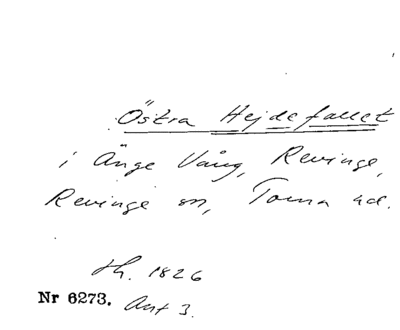 Östra Hejdefallet
i Änge Vång, Revinge,
Revinge sn, Torna hd.
sh. 1826
Nr 6273. Akt 3.